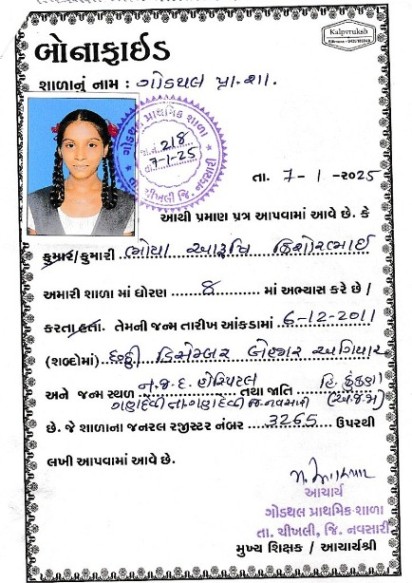 Kalpvruksh
બોનાફાઈડ
શાળાનું નામ : ગોડથલ પ્રા.શા.
ગોડથલ પ્રાથમિક શાળા
જા.નં. 218
તા. 7-1-25
તા. ચીખલી જિ. નવસારી
તા. 7-1-2025
આથી પ્રમાણ પત્ર આપવામાં આવે છે. કે
કુમાર/કુમારી ભોયા આરૂત્તિ કિશોરભાઈ
અમારી શાળા માં ધોરણ 8 માં અભ્યાસ કરે છે /
કરતા હતા. તેમની જન્મ તારીખ આંકડામાં 6-12-2011
(શબ્દોમાં) છઠ્ઠી ડિસેમ્બર બેહજાર અગિયાર
અને જન્મ સ્થળ ન.જ.દ. હોસ્પિટલ તથા જાતિ હિ. કુંકણા
ગણદેવી તા. ગણદેવી જિ. નવસારી (અ.જ.જા)
છે. જે શાળાના જનરલ રજીસ્ટર નંબર 3265 ઉપરથી
લખી આપવામાં આવે છે.
આચાર્ય
ગોડથલ પ્રાથમિક શાળા
તા. ચીખલી, જિ. નવસારી
મુખ્ય શિક્ષક / આચાર્યશ્રી